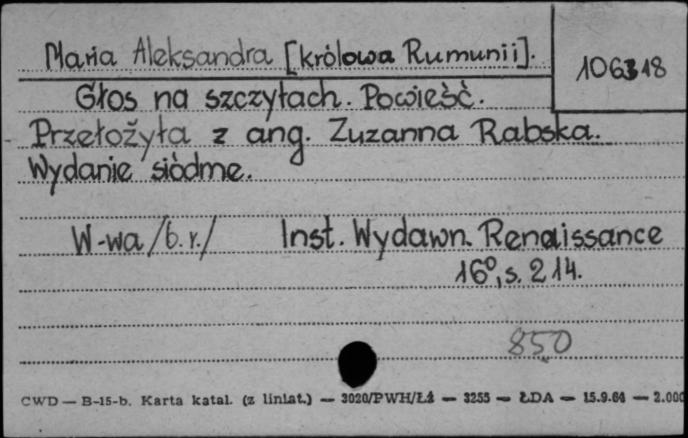 Maria Aleksandra [królowa Rumunii].
106318
Głos na szczytach. Powieść.
Przełożyła z ang. Zuzanna Rabska.
Wydanie siódme.
W-wa /b.r./ Inst. Wydawn. Renaissance
16°, s. 214.
850
CWD — B-15-b. Karta katal. (z liniat.) — 3020/PWH/Łź — 3255 — ŁDA — 15.9.64 — 2.000